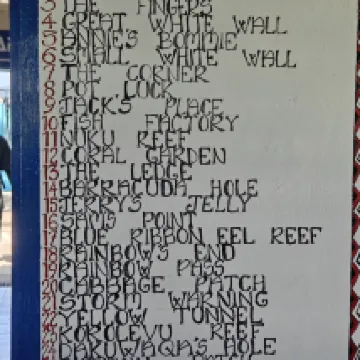 3 THE FINGERS
4 GREAT WHITE WALL
5 ANNIE'S BOMMIE
6 SMALL WHITE WALL
7 THE CORNER
8 POT LUCK
9 JACK'S PLACE
10 FISH FACTORY
11 NUKU REEF
12 CORAL GARDEN
13 THE LEDGE
14 BARRACUDA HOLE
15 JERRY'S JELLY
16 SAM'S POINT
17 BLUE RIBBON EEL REEF
18 RAINBOW'S END
19 RAINBOW PASS
20 CABBAGE PATCH
21 STORM WARNING
22 YELLOW TUNNEL
KOROLEVU REEF
DAKUWAQA'S HOLE